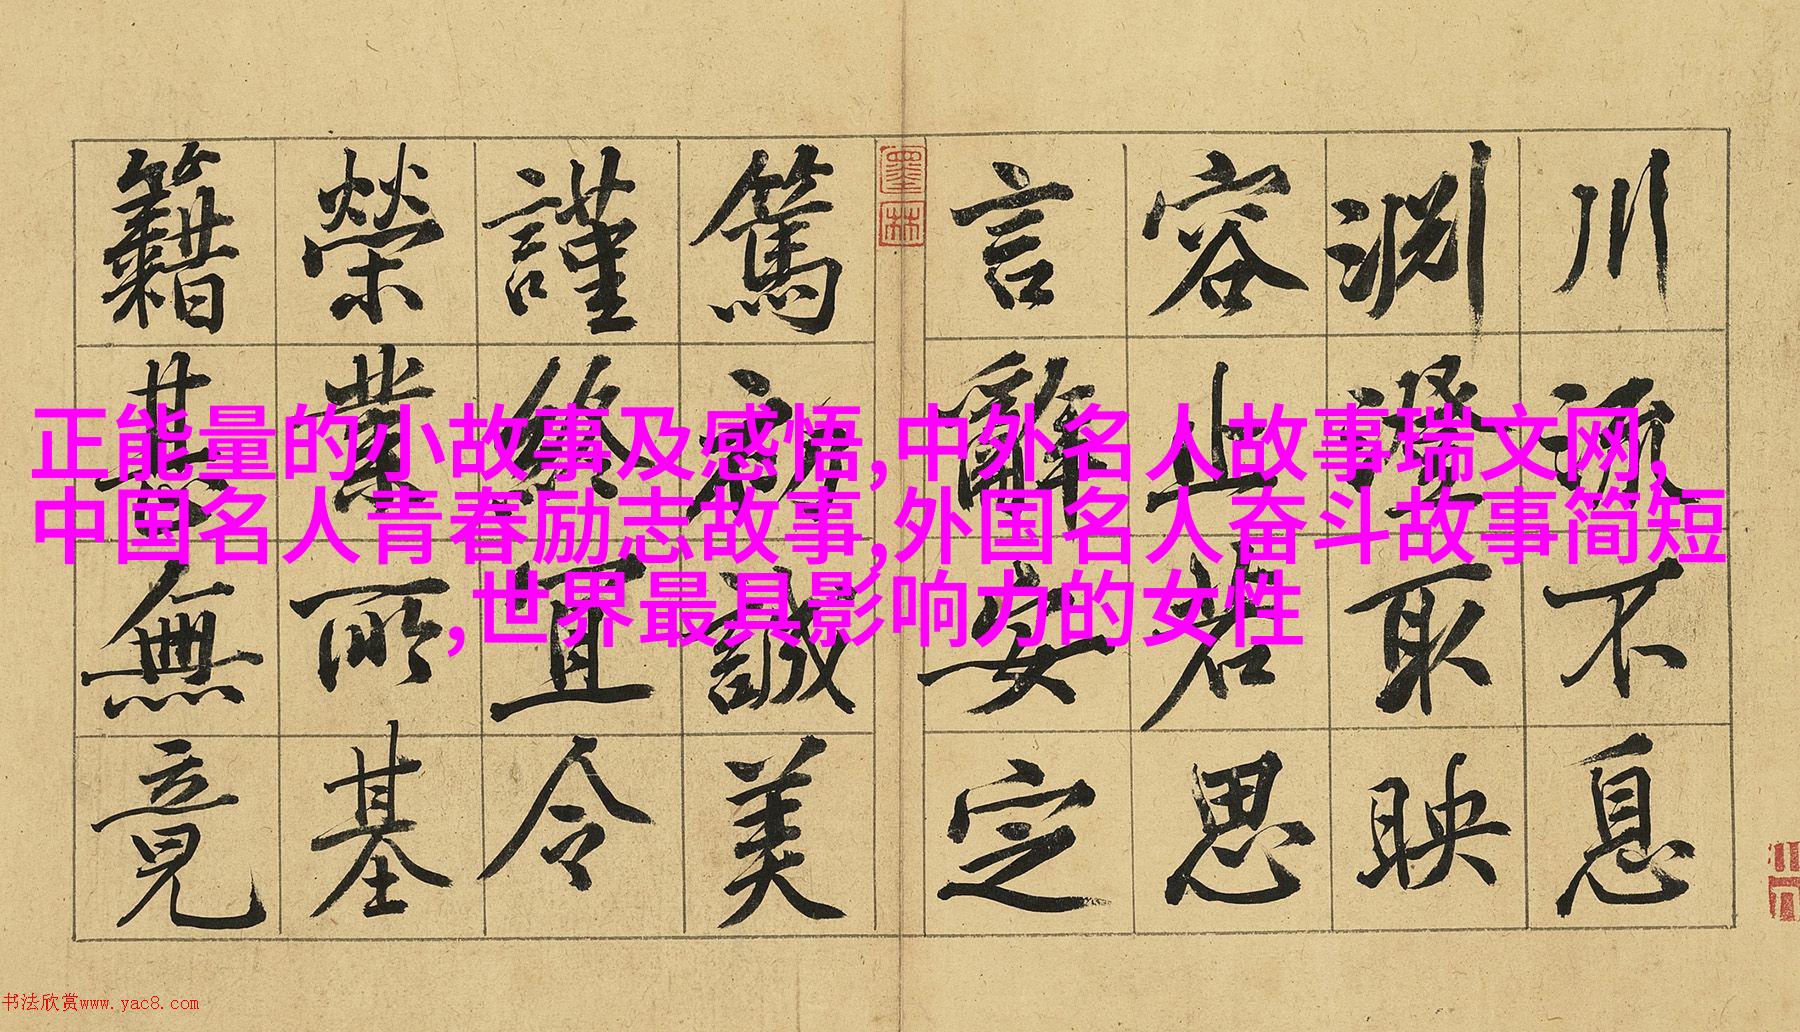 川流不息
淵澄取映
容止若思
言辭安定
墨林
篤初誠美
謹終宜令
榮業所基
籍甚無竟
正能量的小故事及感悟,中外名人故事瑞文网,
中国名人青春励志故事,外国名人奋斗故事简短
,世界最具影响力的女性
书法欣赏www.yac8.com